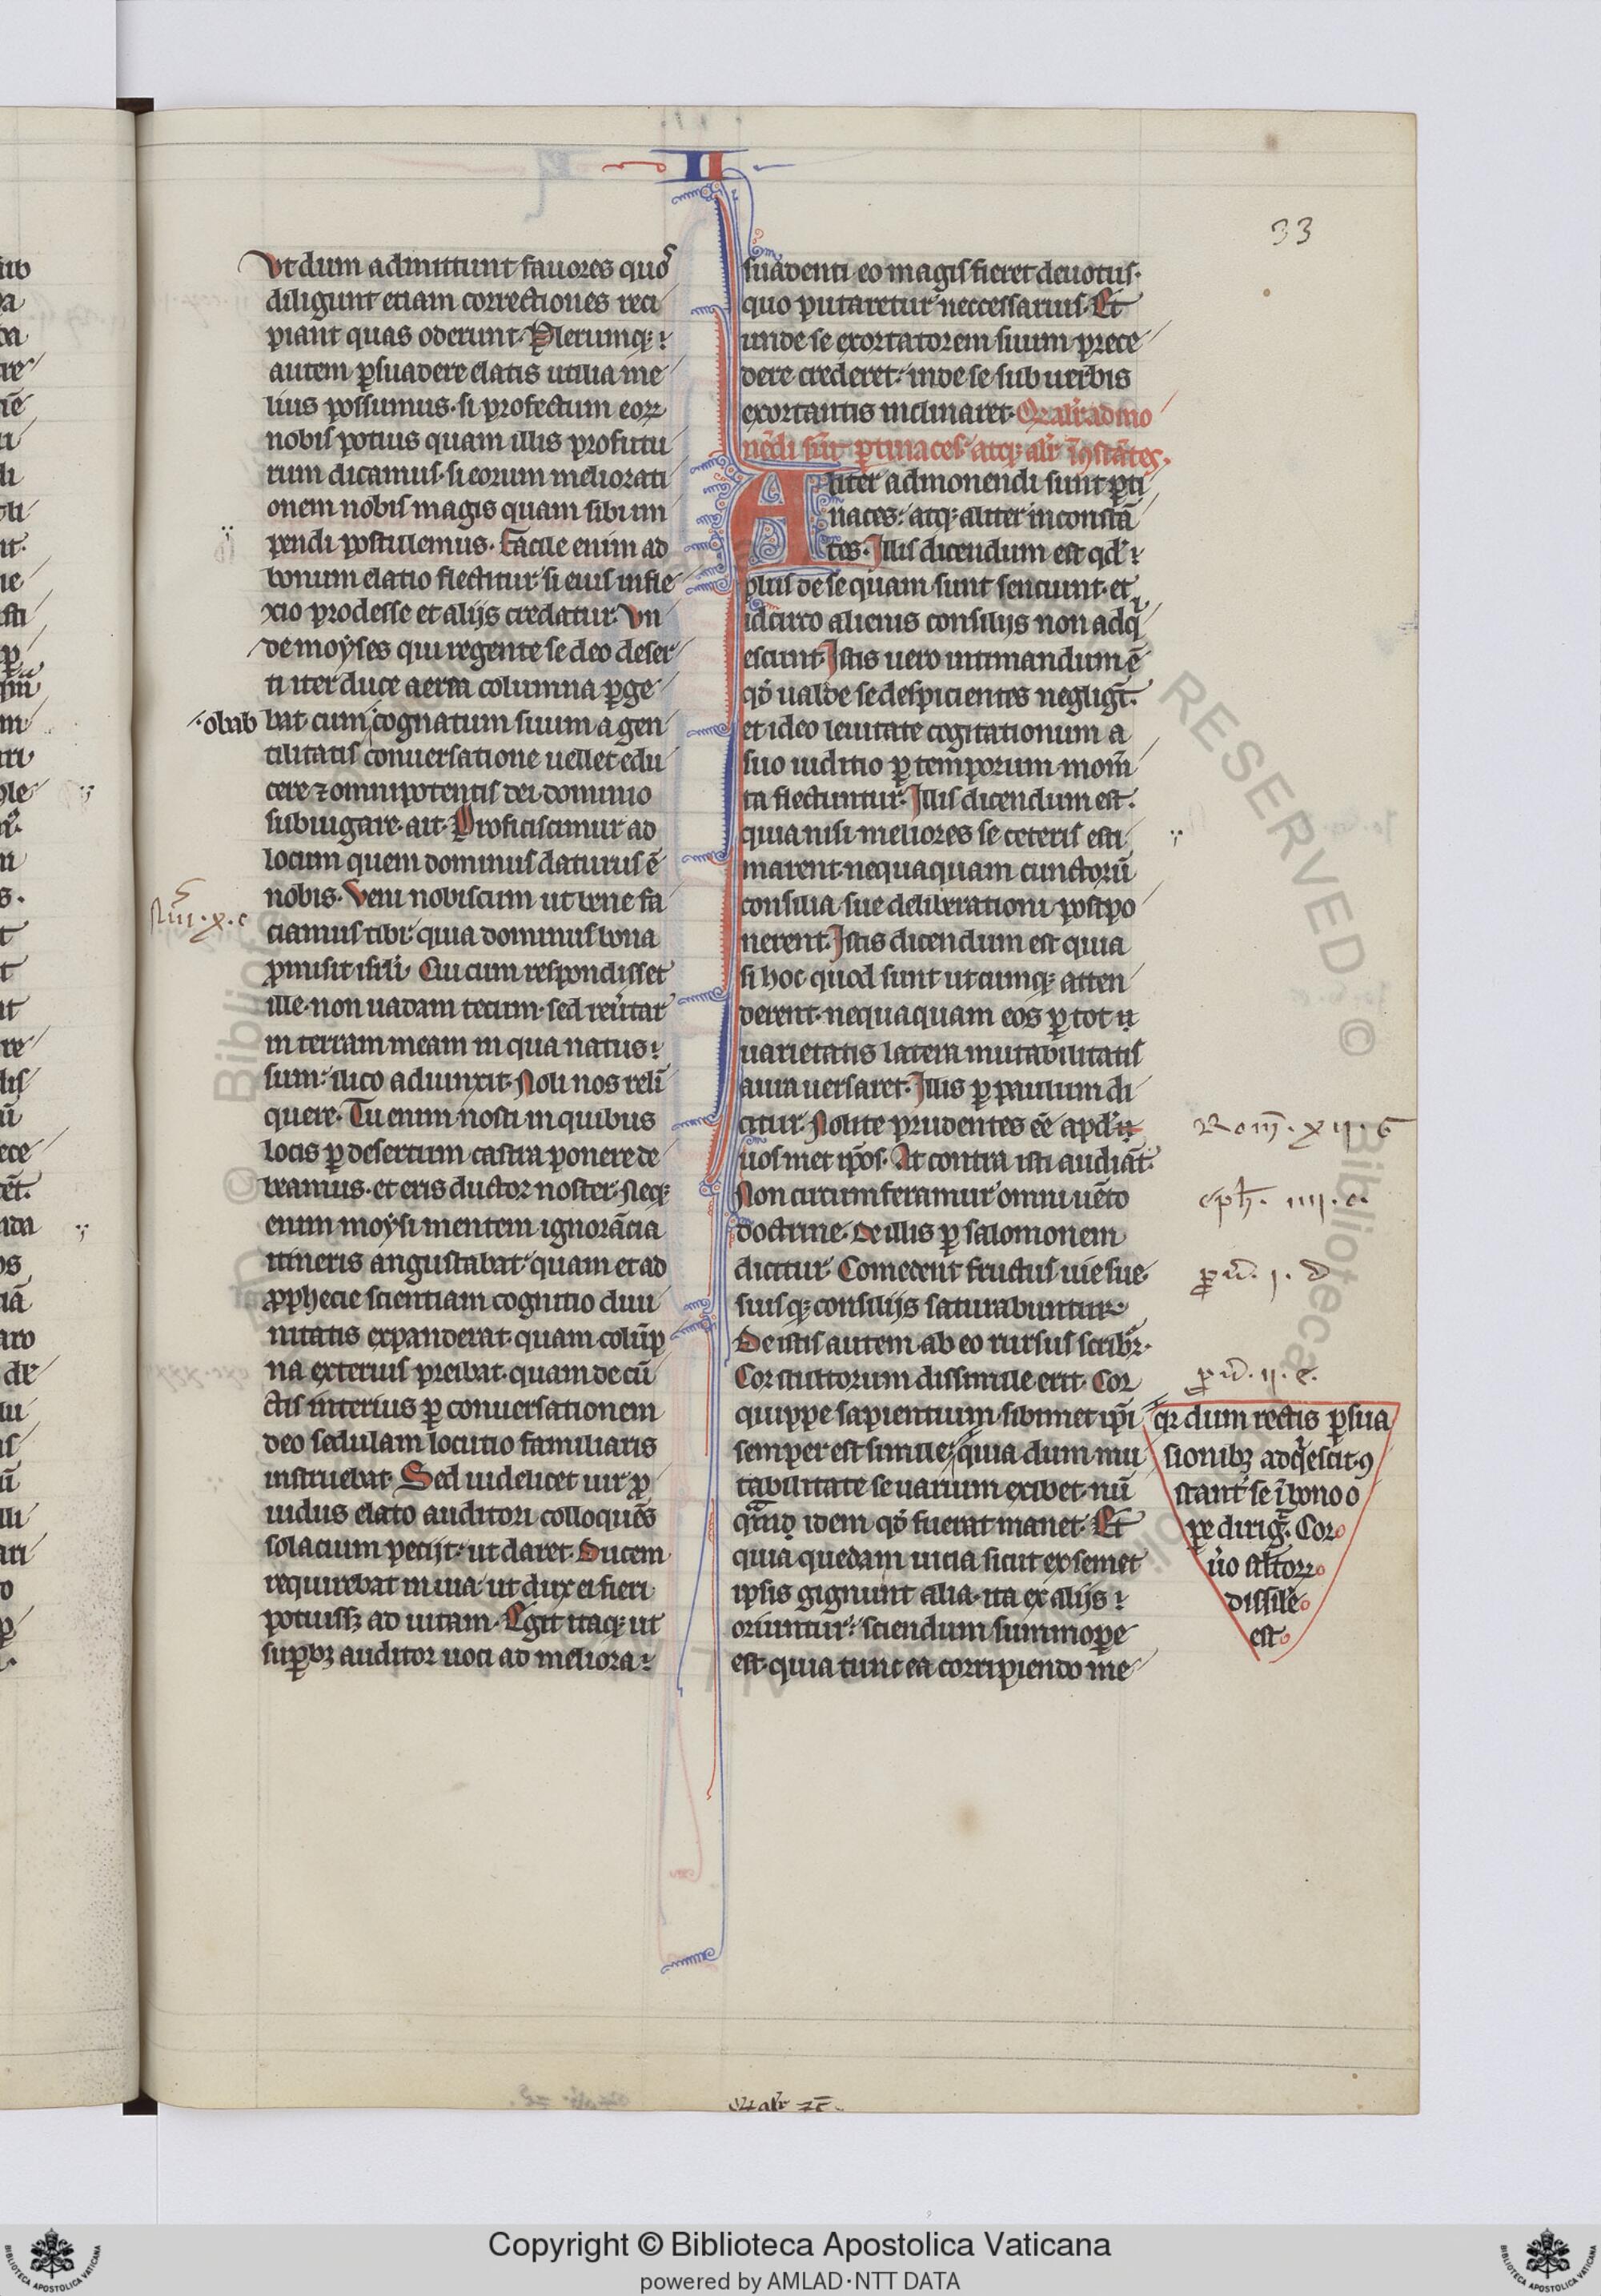 II
33
Vt dum admittunt fauores quos
diligunt etiam correctiones reci
piant quas oderunt. Plerumq;
autem p̲suadere elatis utilia me
lius possumus. si profectum eoꝝ
nobis potius quam illis profutu
rum dicamus. si eorum meliorati
onem nobis magis quam sibi im
pendi postulemus. Facile enim ad
bonum elatio flectitur. si eius infle
xio prodesse et alijs credatur. Vn
de moyses qui regente se deo deser
ti iter duce aeria columna ꝑge
bat cum cognatum suum a gen
·obab
tilitatis conuersatione uellet edu
cere ⁊ omnipotentis dei dominio
subiugare. ait. Proficiscimur ad
locum quem dominus daturus ē
nobis. Veni nobiscum ut bene fa
Nūi. x. e
ciamus tibi quia dominus bona
ꝓmisit isrl̄i. Cui cum respondisset
ille. non uadam tecum. sed reuertar
in terram meam in qua natus
sum: ilico adiunxit. Noli nos reli
quere. Tu enim nosti in quibus
locis ꝑ desertum castra ponere de
beamus. et eris ductor noster. Neq;
enim moysi mentem ignorācia
itineris angustabat. quam et ad
ꝓphecie scientiam cognitio diui
nitatis expanderat. quam colūp
na exterius preibat. quam de cū
ctis interius ꝑ conuersationem
deo sedulam locutio familiaris
instruebat. Sed uidelicet uir ꝓ
uidus elato auditori colloquēs
solacium pecijt. ut daret. Ducem
requirebat in uia ut dux ei fieri
potuiss; ad uitam. Egit itaq; ut
suꝑb; auditor uoci ad meliora
suadenti eo magis fieret deuotus.
quo putaretur neccessarius. Et
unde se exortatorem suum prece
dere crederet. inde se sub uerbis
exortantis inclinaret. Qd alit̄ admo
nēdi sūt ꝑtinaces atq; alit̄ īcstātes.
Aliter admonendi sunt ꝑti
naces. atq; aliter inconstā
tes. Illis dicendum est qd
plus de se quam sunt senciunt. et
idcirco alienis consilijs non adq
escunt. Istis uero intimandum ē
qd ualde se despicientes negligūt.
et ideo leuitate cogitationum a
suo iuditio ꝑ temporum momē
ta flectuntur. Illis dicendum est.
quia nisi meliores se ceteris esti
marent. nequaquam cunctorū
consilia sue deliberationi postpo
nerent. Istis dicendum est quia
si hoc quod sunt utcumq; atten
derent. nequaquam eos ꝑ tot
uarietatis latera mutabilitatis
aura uersaret. Illis ꝑ paulum di
citur. Nolite prudentes eē apd
Rom̄. xii. G
uosmet ip̄os. At contra isti audiāt.
Non circumferamur omni uēto
eph̄. iiii. c.
doctrine. De illis ꝑ salomonem
dicitur. Comedent fructus uie sue.
ꝑu. i. d
suisq; consilijs saturabuntur.
De istis autem ab eo rursus scribit̄.
Cor stultorum dissimile erit. Cor
ꝑu. ii. c.
quippe sapientium sibimet ip̄i
semper est simile. quia dum mu
tabilitate se uarium exibet. nū
quāq; idem qd fuerat manet. Et
quia quedam uicia sicut ex semet
ipsis gignunt alia. ita ex alijs
oriuntur. sciendum summoꝑe
est. quia tunc ea corripiendo me
qr dum rectis ꝑsua
sionib; adq̄escit. ꝯ
stant̄ se ī bono o
pe dirigit. Cor
ūo stl̄toꝝ
dissile
est
Qd alit̄ ⁊c̄.
Copyright © Biblioteca Apostolica Vaticana
powered by AMLAD·NTT DATA